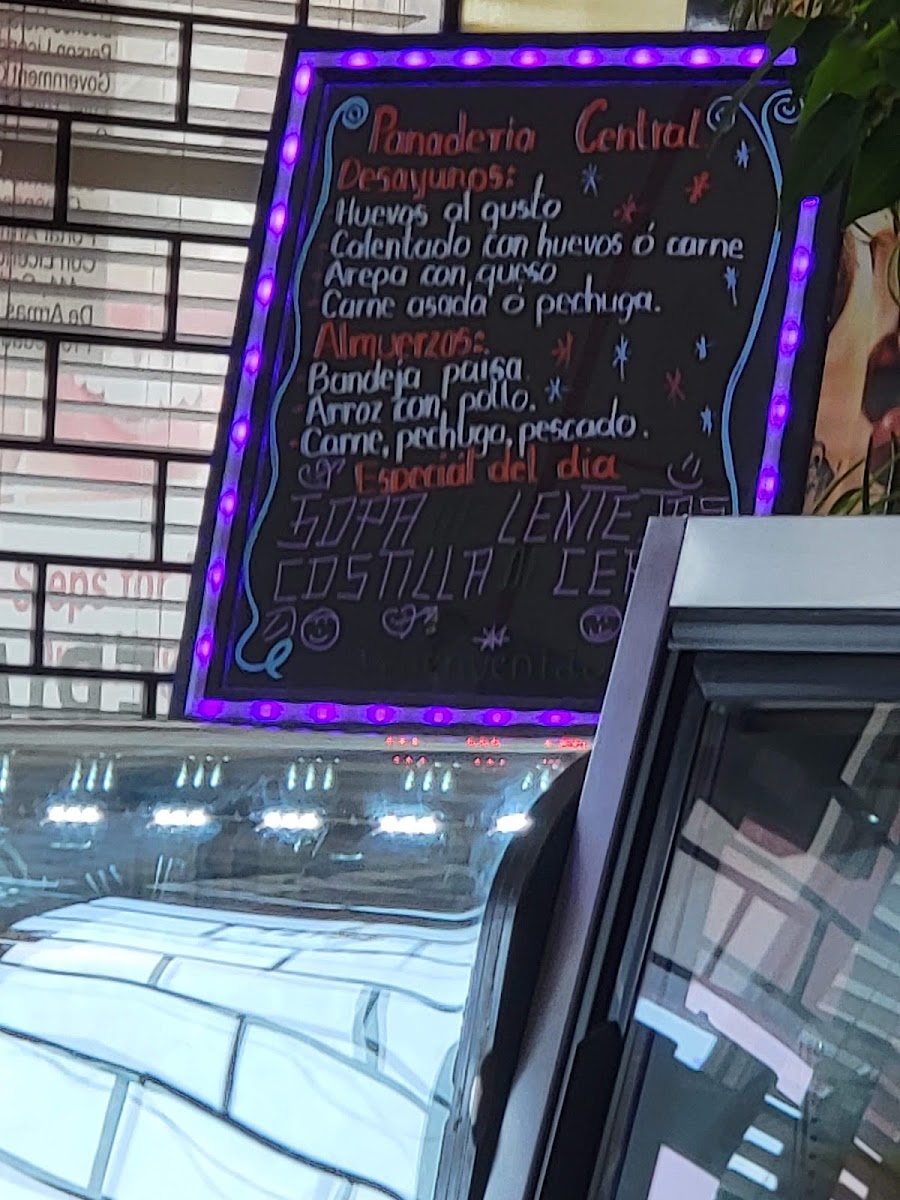 Panaderia Central
Desayunos:
Huevos al gusto
Calentado con huevos ó carne
Arepa con queso
Carne asada ó pechuga.
Almuerzos:
Bandeja paisa.
Arroz con pollo.
Carne, pechugo, pescado.
Especial del dia
SOPA LENTEJAS
COSTILLA
Person
Government
De Armas
Steps for